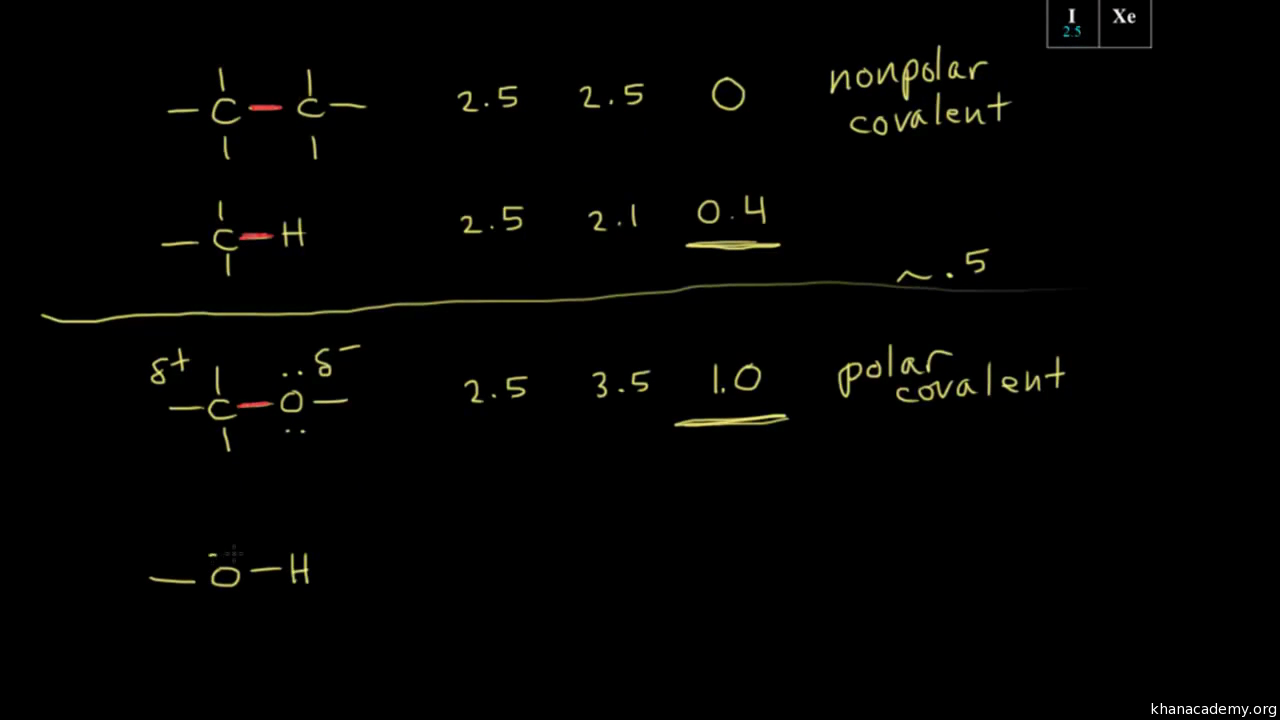 I Xe
2.5
C C 2.5 2.5 0 nonpolar
covalent
C H 2.5 2.1 0.4
~ .5
δ+ δ-
C O 2.5 3.5 1.0 polar
covalent
O H
khanacademy.org